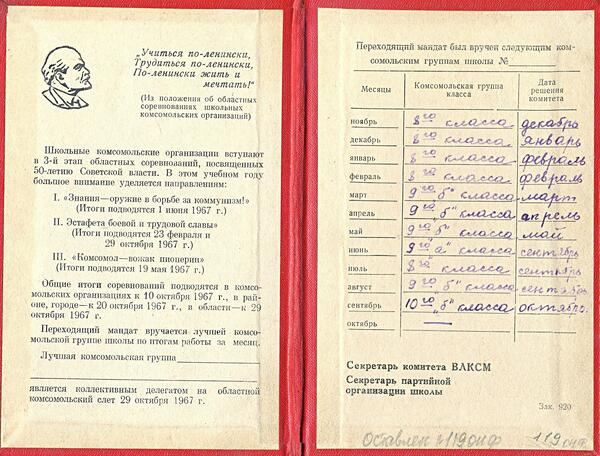 „Учиться по-ленински,
Трудиться по-ленински,
По-ленински жить и
мечтать!"
(Из положения об областных
соревнованиях школьных
комсомольских организаций)
Школьные комсомольские организации вступают
в 3-й этап областных соревнований, посвященных
50-летию Советской власти. В этом учебном году
большое внимание уделяется направлениям:
I. «Знания—оружие в борьбе за коммунизм!»
(Итоги подводятся 1 июня 1967 г.)
II. Эстафета боевой и трудовой славы»
(Итоги подводятся 23 февраля и
29 октября 1967 г.)
III. «Комсомол—вожак пионерии»
(Итоги подводятся 19 мая 1967 г.)
Общие итоги соревнований подводятся в комсо-
мольских организациях к 10 октября 1967 г., в рай-
оне, городе—к 20 октября 1967 г., в области—к 29
октября 1967 г.
Переходящий мандат вручается лучшей комсо-
мольской группе школы по итогам работы за месяц.
Лучшая комсомольская группа
является коллективным делегатом на областной
комсомольский слет 29 октября 1967 г.
Переходящий мандат был вручен следующим ком-
сомольским группам школы №
Месяцы Комсомольская группа класса Дата решения комитета
ноябрь 8го класса декабрь
декабрь 8го класса январь
январь 8го класса февраль
февраль 8го класса февраль
март 9го „б" класса март
апрель 9го „б" класса апрель
май 9го „б" класса май
июнь 9го „а" класса сентябрь
июль 8го класса сентябрь
август 9го „б" класса сентябрь
сентябрь 10го „б" класса октябрь
октябрь —
Секретарь комитета ВЛКСМ
Секретарь партийной
организации школы
Зак. 920
Оставлен 119 оцф
119 оцф